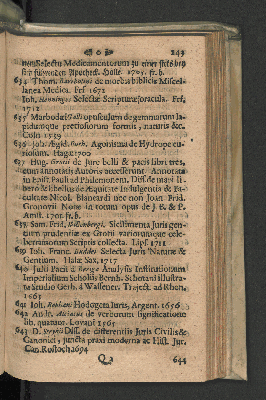 ( o ) 243
nen Selectus Medicamentorum zu einer stets bey
sich führenden Apotheck. Halle 1705. fr. b.
634 Thom. Bartholinus de morbis biblicis Miscel-
lanea Medica. Frf 1672
Joh. Henninges Selectæ Scripturæ oracula. Frf.
1712
635 Marbodæi Galli opusculum de gemmarum la-
pidumque pretiosorum formis, naturis &c.
Coln 1539
636 Joh. Ægid. Agonisma de Hydrope cu-
riosum. Hagæ 1700
637 Hug. Grotii de Jure belli & pacis libri tres,
cum annotatis Autoris accesserunt Annotata
in Epist. Pauli ad Philemonem, Diss. de mari li-
bero & libellus de Æquitate Indulgentia & Fa-
cultate Nicol. Blancardi nec non Joan. Frid.
Gronovii Notæ in totum opus de J. B. & P.
Amst. 1701. fr. b.
638 Sam. Frid. Sicilimenta Juris gen-
tium prudentiæ ex Grotii variorumque cele-
berrimorum Scriptis collecta. Lips 1711
639 Joh. Franc. Buddei Selecta Juris Naturæ &
Gentium. Halæ Sax. 1717
640 Julii Pacii à Beriga Analysis Institutionum
Imperialium Scholiis Bernh. Schotani illustra-
ta Studio Gerh. à Wassener. Traject. ad Rhen.
1663
641 Joh. Hodogeta Juris, Argent. 1656
642 Andr. Alciatus de verborum significatione
lib. quatuor. Lovani 1565
643 D. Diss. de differentiis Juris Civilis &
Canonici, juncta praxi moderna ac Hist. Jur.
Can. Rostoch 1694
Q 2 644